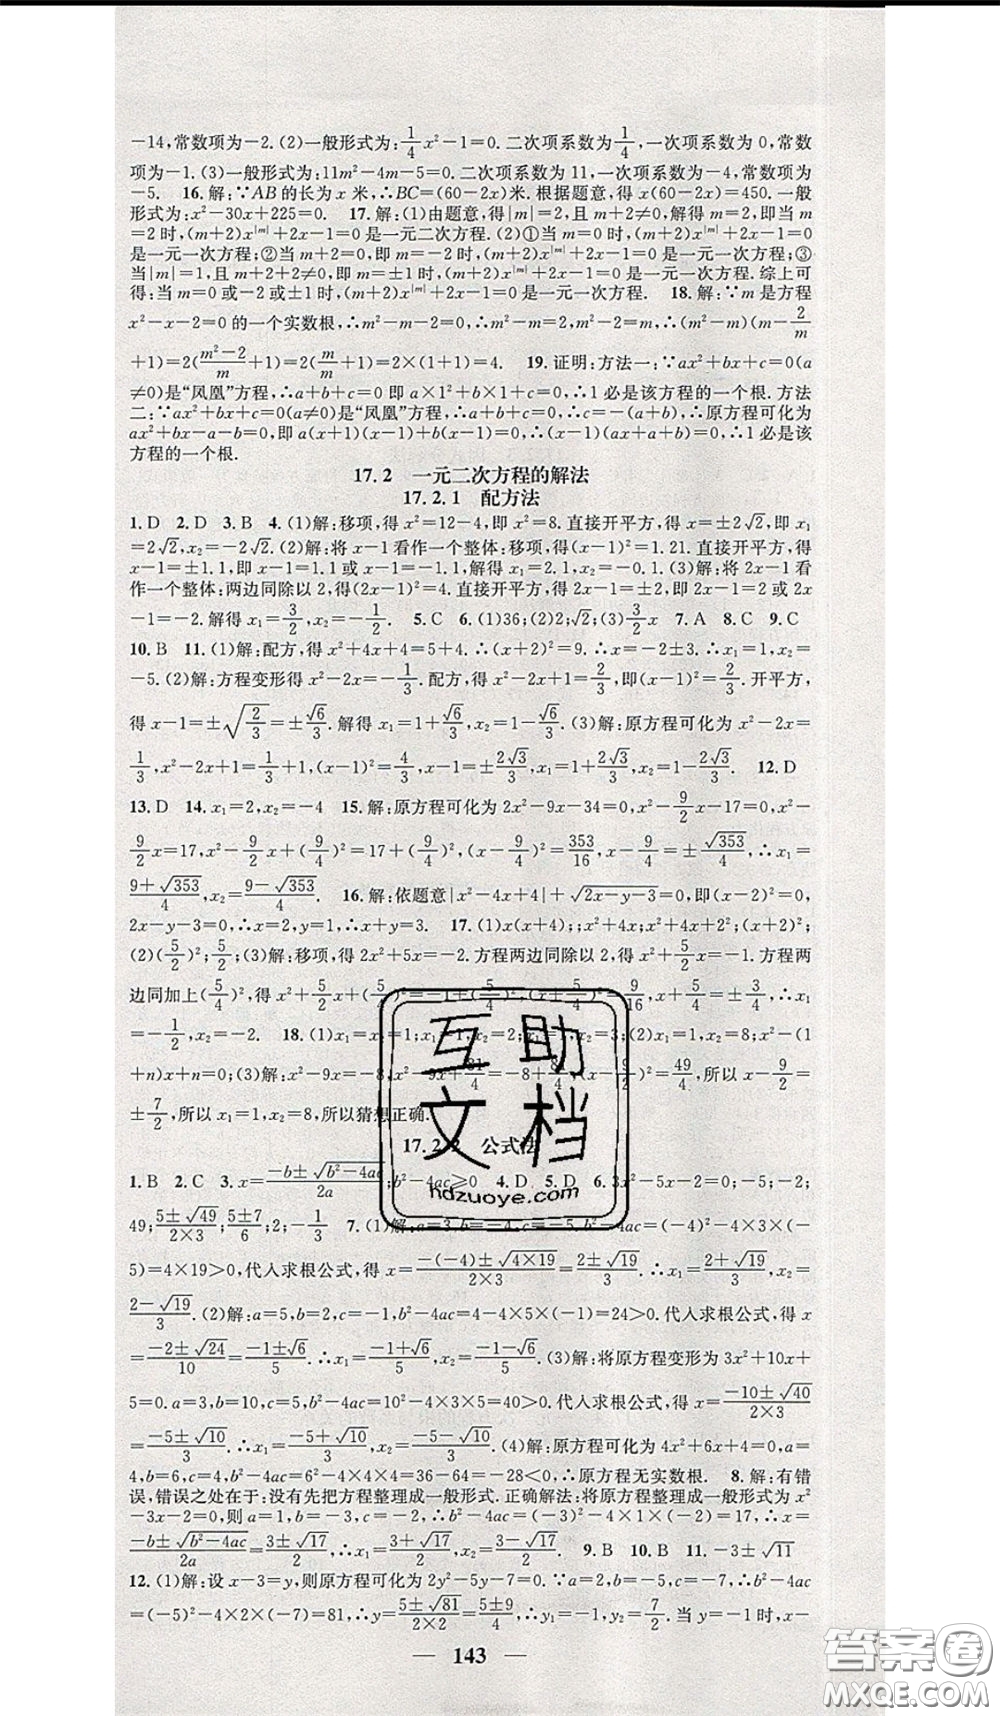 -14,常数项为-2.(2)一般形式为:1/4x²-1=0.二次项系数为1/4,一次项系数为0,常数
项为-1.(3)一般形式为:11m²-4m-5=0.二次项系数为11,一次项系数为-4,常数项为
-5. 16.解:∵AB的长为x米,∴BC=(60-2x)米.根据题意,得x(60-2x)=450.一般
形式为:x²-30x+225=0. 17.解:(1)由题意,得|m|=2,且m+2≠0,解得m=2,即当m
=2时,(m+2)x^|m|+2x-1=0是一元二次方程.(2)①当m=0时,(m+2)x^|m|+2x-1=0
是一元一次方程;②当m+2=0,即m=-2时,(m+2)x^|m|+2x-1=0是一元一次方程;③
当|m|=1,且m+2+2≠0,即m=±1时,(m+2)x^|m|+2x-1=0是一元一次方程.综上可
得:当m=0或-2或±1时,(m+2)x^|m|+2x-1=0是一元一次方程. 18.解:∵m是方程
x²-x-2=0的一个实数根,∴m²-m-2=0,m²-2=m,∴(m²-m)(m-2/m
+1)=2((m²-2)/m+1)=2(m/m+1)=2×(1+1)=4. 19.证明:方法一:∵ax²+bx+c=0(a
≠0)是“凤凰”方程,∴a+b+c=0即a×1²+b×1+c=0,∴1必是该方程的一个根.方法
二:∵ax²+bx+c=0(a≠0)是“凤凰”方程,∴a+b+c=0,∴c=-(a+b),∴原方程可化为
ax²+bx-a-b=0,即a(x+1)(x-1)+b(x-1)=0,∴(x-1)(ax+a+b)=0,∴1必是该
方程的一个根.
17.2 一元二次方程的解法
17.2.1 配方法
1.D 2.D 3.B 4.(1)解:移项,得x²=12-4,即x²=8.直接开平方,得x=±2√2,即x₁
=2√2,x₂=-2√2.(2)解:将x-1看作一个整体:移项,得(x-1)²=1.21.直接开平方,得
x-1=±1.1,即x-1=1.1或x-1=-1.1,解得x₁=2.1,x₂=-0.1.(3)解:将2x-1看
作一个整体:两边同除以2,得(2x-1)²=4.直接开平方,得2x-1=±2,即2x-1=2或2x
-1=-2.解得x₁=3/2,x₂=-1/2. 5.C 6.(1)36;(2)2;√2;(3)3/2x 7.A 8.C 9.C
10.B 11.(1)解:配方,得x²+4x+4=5+4.∴(x+2)²=9.∴x=-2±3.∴x₁=1,x₂=
-5.(2)解:方程变形得x²-2x=-1/3.配方,得x²-2x+1=2/3,即(x-1)²=2/3.开平方,
得x-1=±√(2/3)=±√6/3.解得x₁=1+√6/3,x₂=1-√6/3.(3)解:原方程可化为x²-2x=
1/3,x²-2x+1=1/3+1,(x-1)²=4/3,x-1=±2√3/3,x₁=1+2√3/3,x₂=1-2√3/3. 12.D
13.D 14.x₁=2,x₂=-4 15.解:原方程可化为2x²-9x-34=0,x²-9/2x-17=0,x²-
9/2x=17,x²-9/2x+(9/4)²=17+(9/4)²,(x-9/4)²=353/16,x-9/4=±√353/4,∴x₁=
(9+√353)/4,x₂=(9-√353)/4. 16.解:依题意|x²-4x+4|+√(2x-y-3)=0,即(x-2)²=0,
2x-y-3=0,∴x=2,y=1,∴x+y=3. 17.(1)x(x+4);;x²+4x;x²+4x+2²;(x+2)²;
(2)(5/2)²;5/2;(3)解:移项,得2x²+5x=-2.方程两边同除以2,得x²+5/2x=-1.方程两
边同加上(5/4)²,得x²+5/2x+(5/4)²=-1+(5/4)²,(x+5/4)²=9/16,x+5/4=±3/4,∴x₁
=-1/2,x₂=-2. 18.(1)x₁=x₂=1;x₁=1,x₂=2;x₁=1,x₂=3;(2)x²-(1
+n)x+n=0;(3)解:x²-9x=-8,x²-9x+81/4=-8+81/4,(x-9/2)²=49/4,所以x-9/2=
±7/2,所以x₁=1,x₂=8,所以猜想正确.
17.2.2 公式法
1.B 2.C 3.x=(-b±√(b²-4ac))/2a;b²-4ac≥0 4.D 5.D 6.3x²-5x-2=0;-5;-2;
49;(5±√49)/(2×3);(5±7)/6;2;-1/3 7.(1)解:a=3,b=-4,c=-5,b²-4ac=(-4)²-4×3×(-
5)=4×19>0,代入求根公式,得x=(-(-4)±√(4×19))/(2×3)=(2±√19)/3.∴x₁=(2+√19)/3,x₂=
(2-√19)/3.(2)解:a=5,b=2,c=-1,b²-4ac=4-4×5×(-1)=24>0.代入求根公式,得x
=(-2±√24)/10=(-1±√6)/5.∴x₁=(-1+√6)/5,x₂=(-1-√6)/5.(3)解:将原方程变形为3x²+10x+
5=0.a=3,b=10,c=5,∴b²-4ac=10²-4×3×5=40>0.代入求根公式,得x=(-10±√40)/(2×3)
=(-5±√10)/3.∴x₁=(-5+√10)/3,x₂=(-5-√10)/3.(4)解:原方程可化为4x²+6x+4=0,a=
4,b=6,c=4,b²-4ac=6²-4×4×4=36-64=-28<0,∴原方程无实数根. 8.解:有错
误,错误之处在于:没有先把方程整理成一般形式.正确解法:将原方程整理成一般形式为x²
-3x-2=0,则a=1,b=-3,c=-2,∴b²-4ac=(-3)²-4×1×(-2)=17,∴x=
(-b±√(b²-4ac))/2a=(3±√17)/2,∴x₁=(3+√17)/2,x₂=(3-√17)/2. 9.B 10.B 11.-3±√11
12.(1)解:设x-3=y,则原方程可化为2y²-5y-7=0.∵a=2,b=-5,c=-7,∴b²-4ac
=(-5)²-4×2×(-7)=81,∴y=(5±√81)/(2×2)=(5±9)/4,∴y₁=-1,y₂=7/2.当y=-1时,x-
— 143 —
互助
文档
hdzuoye.com
答案卷
MXQE.COM